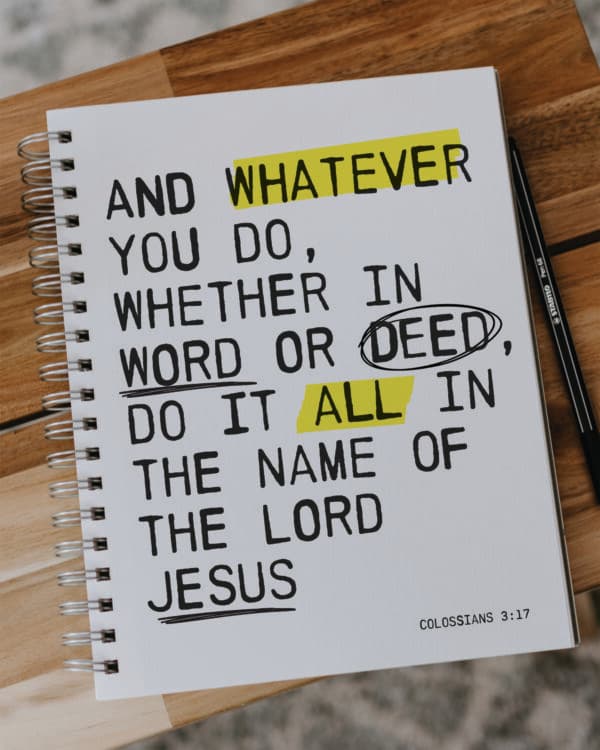 AND WHATEVER
YOU DO,
WHETHER IN
WORD OR DEED,
DO IT ALL IN
THE NAME OF
THE LORD
JESUS
COLOSSIANS 3:17
STABILO
Pen 68